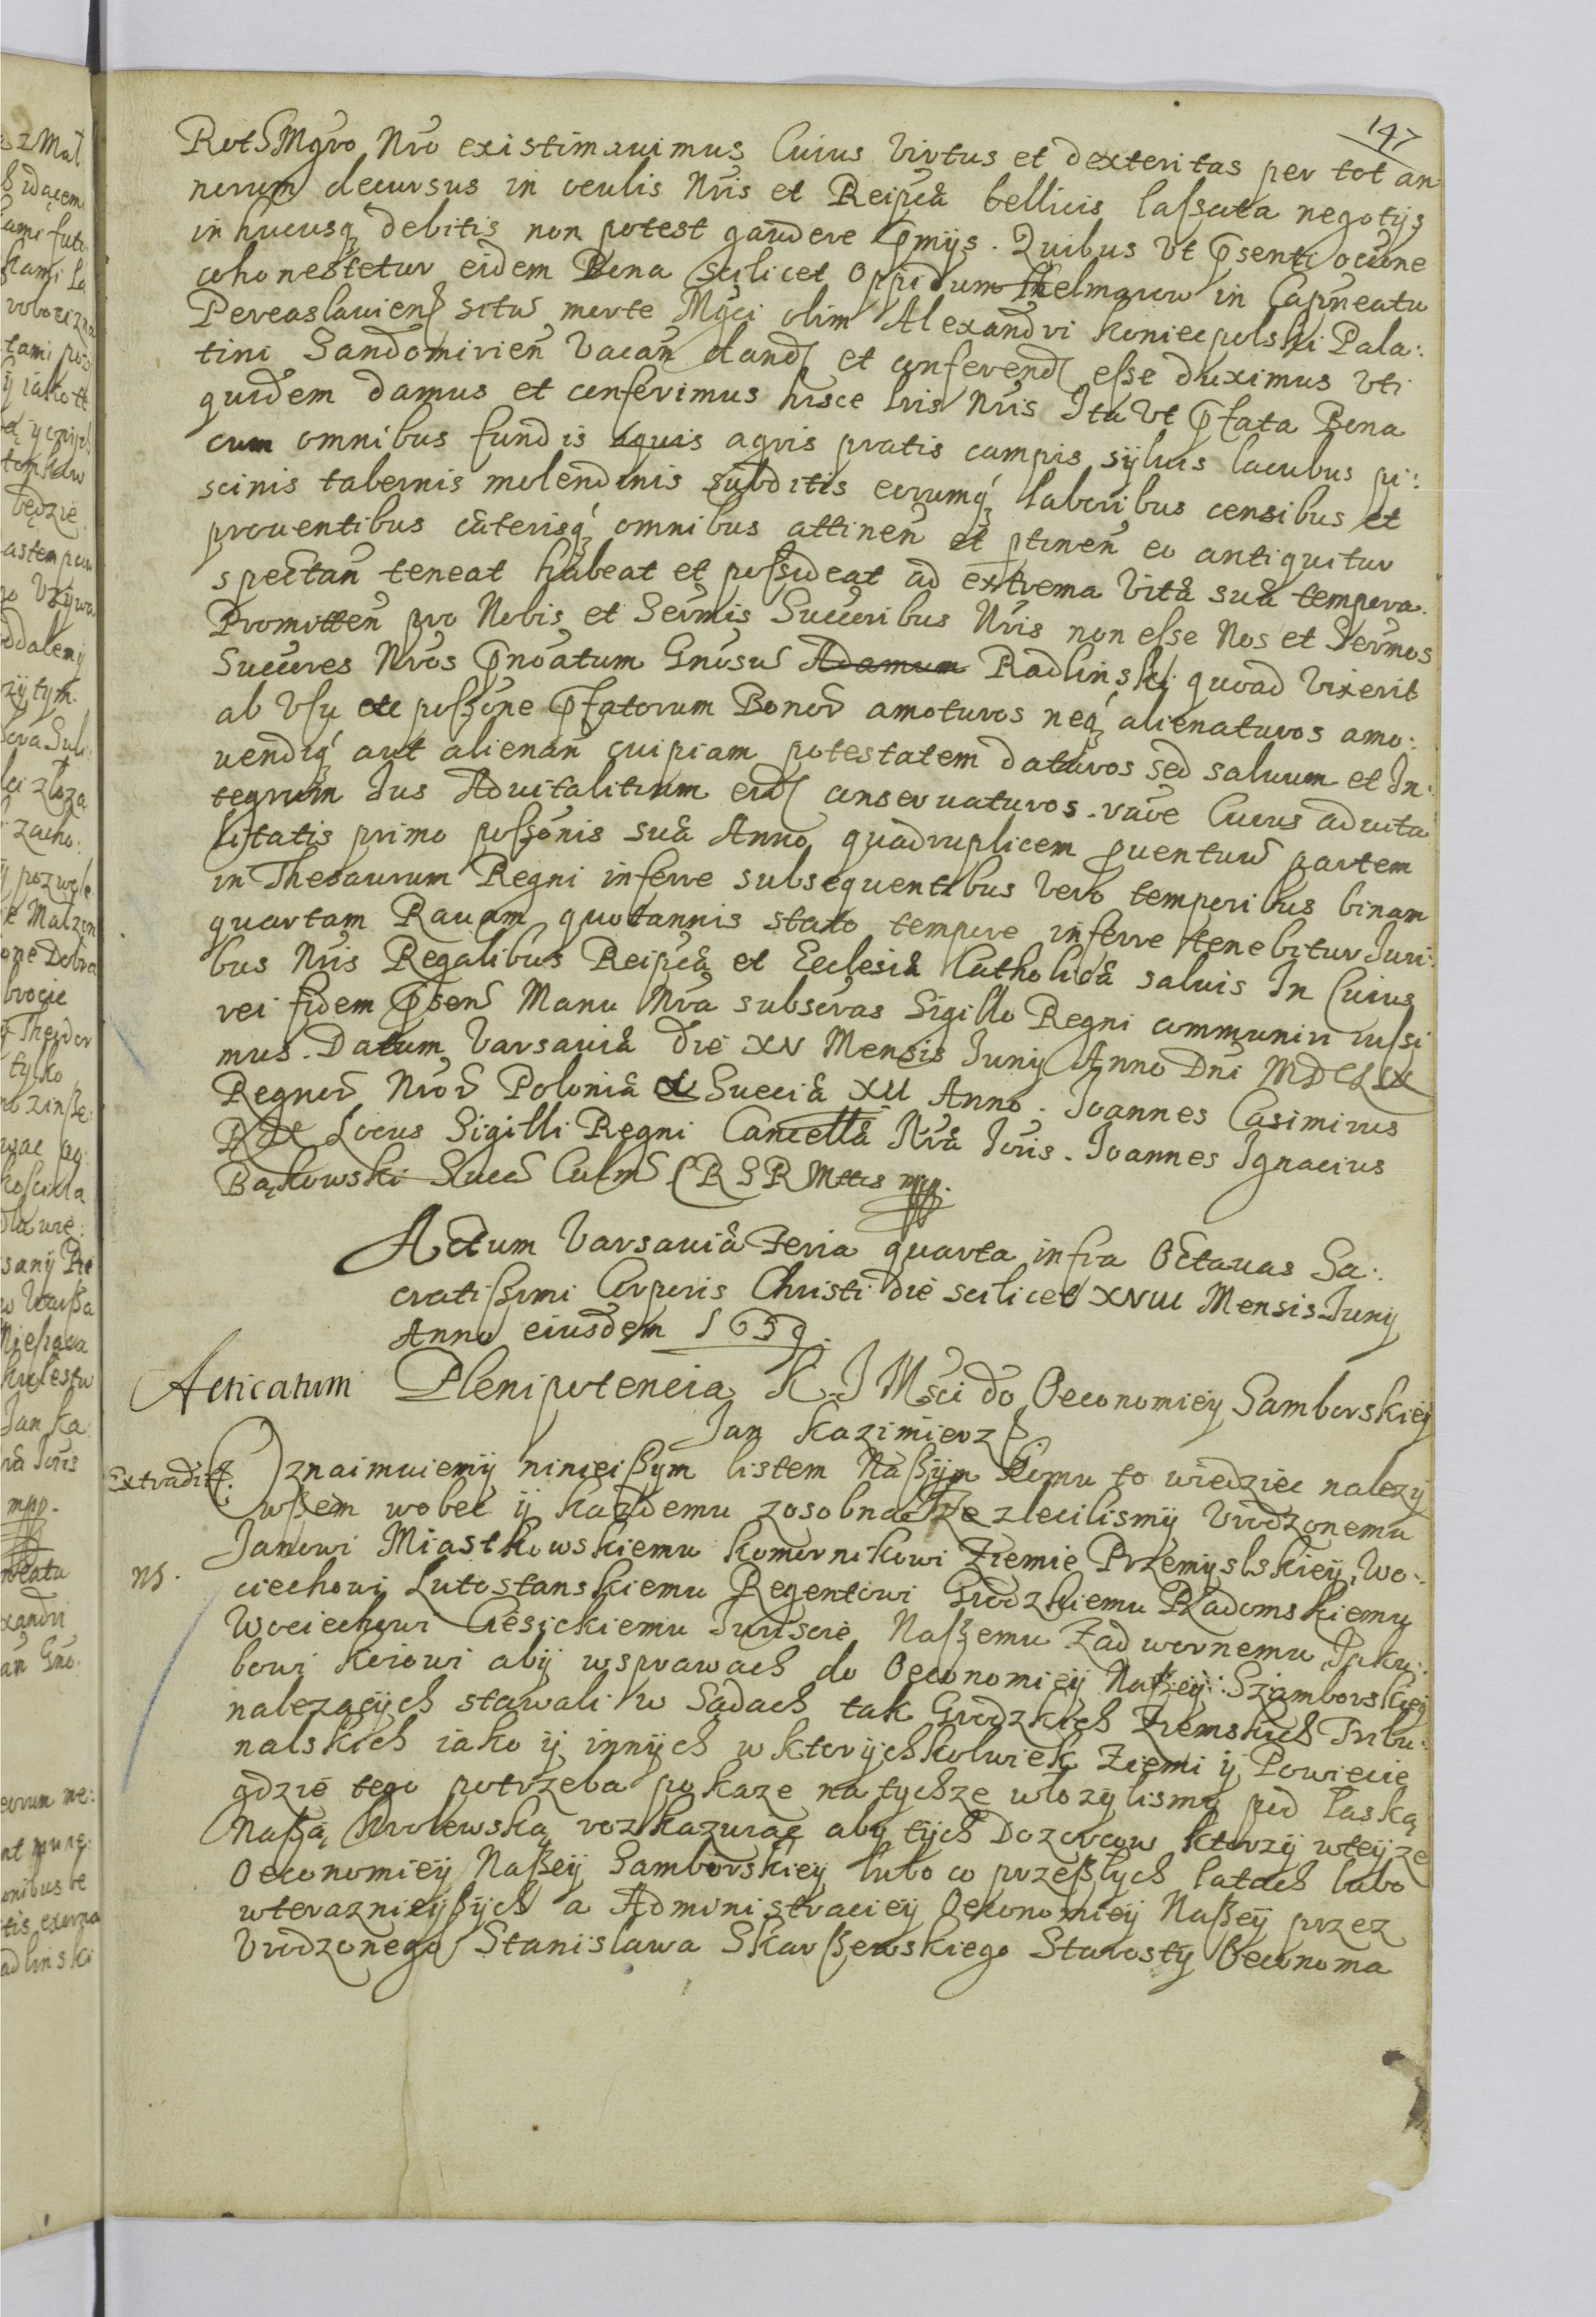 147
RotSMgro Nro existimauimus Cuius Virtus et dexteritas per tot an
norum decursus in oculis Nris et Reipcæ bellicis lassata negotijs
in hucusq debitis non potest gaudere pmijs. Quibus Vt psenti occone
cohonestetur eidem Bona scilicet Oppidum Thelmarow in Capneatu
Pereaslauien situm morte Mgci olim Alexandri Koniecpolski Pala:
tini Sandomirien Vacan dand et conferend esse duximus Vti
quidem damus et conferimus hisce Lris Nris Ita Vt pfata Bona
cum omnibus fundis aquis agris pratis campis syluis lacubus pi:
scinis tabernis molendinis subditis eorumq laboribus censibus et
prouentibus cæterisq omnibus attinen et ptinen eo antiquitur
spectan teneat habeat et possideat ad extrema Vitæ suæ tempora.
Promitten pro Nobis et Sermis Succribus Nris non esse Nos et Sermos
Succres Nros pnoatum Gnosum Adamum Radlinski quoad Vixerit
ab Vsu et possone pfatorum Bonor amoturos neq alienaturos amo:
uendiq aut alienan cuipiam potestatem daturos sed saluum et In:
tegrum Ius Aduitalitium eid conseruaturos. raoe Cuius aduita
litatis primo possonis suæ Anno quadruplicem puentuum partem
in Thesaurum Regni inferre subsequentibus Vero temporibus binam
quartam Rauam quotannis stato tempore inferre tenebitur Juri:
bus Nris Regalibus Reipcæ et Ecclesiæ Catholicæ saluis In Cuius
rei fidem psens Manu Nra subscras Sigillo Regni communiri iussi
mus. Datum Varsauiæ die XV Mensis Iunij Anno Dni MDCLIX
Regnor Nror Poloniæ et Sueciæ XII Anno. Joannes Casimirus
Rex Locus Sigilli Regni Cancellæ Nræ Ioris. Joannes Ignacius
Bąkowski Succ Culm SRSRMttis mpp.
Actum Varsauiæ Feria quarta infra Octauas Sa:
cratissimi Corporis Christi die scilicet XVIII Mensis Iunij
Anno eiusdem 1659.
Acticatum Plenipotencia K J Msci do Oeconomiey Samborskiey
Jan Kazimierz
Extradit. Oznaimuiemy ninieiszym listem Naszym komu to wiedziec nalezy
wszem wobec y kazdemu zosobna Ize zlecilismy Vrodzonemu
Janowi Miastkowskiemu komornikowi Ziemie Przemyslskiey, Wo:
ns. ciechowi Lutostanskiemu Regentowi Grodzkiemu Radomskiemu
Wociechowi Ciesickiemu Juriscie Naszemu Zadwornemu Jaku:
bowi Keiowi aby wsprawach do Oeconomiey Naszey Szamborskiey
nalezacych stawali w Sądach tak Grodzkich Ziemskich Tribu:
nalskich iako y innych w ktorychkolwiek Ziemi y Powiecie
gdzie tego potrzeba pokaze na tychze włozylismy pod łaską
Naszą Krolewską rozkazuiąc aby tych Dozorcow ktorzy wteyze
Oeconomiey Naszey Samborskiey lubo co przeszlych latach lubo
wteraznieyszych a Administraciey Oekonomiey Naszey przez
Vrodzonego Stanisława Skarszewskiego Starosty Oeconoma